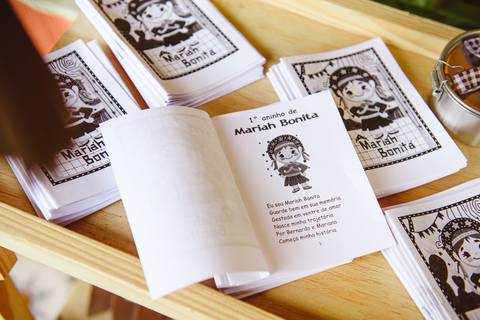 Mariah
Bonita
Mariah
Bon
1º aninho de
Mariah Bonita
Eu sou Mariah Bonita
Guarde bem em sua memória
Gestada em ventre de amor
Nasce minha trajetória
Por Bernardo e Mariana
Começo minha história
1
Mariah
Bonita